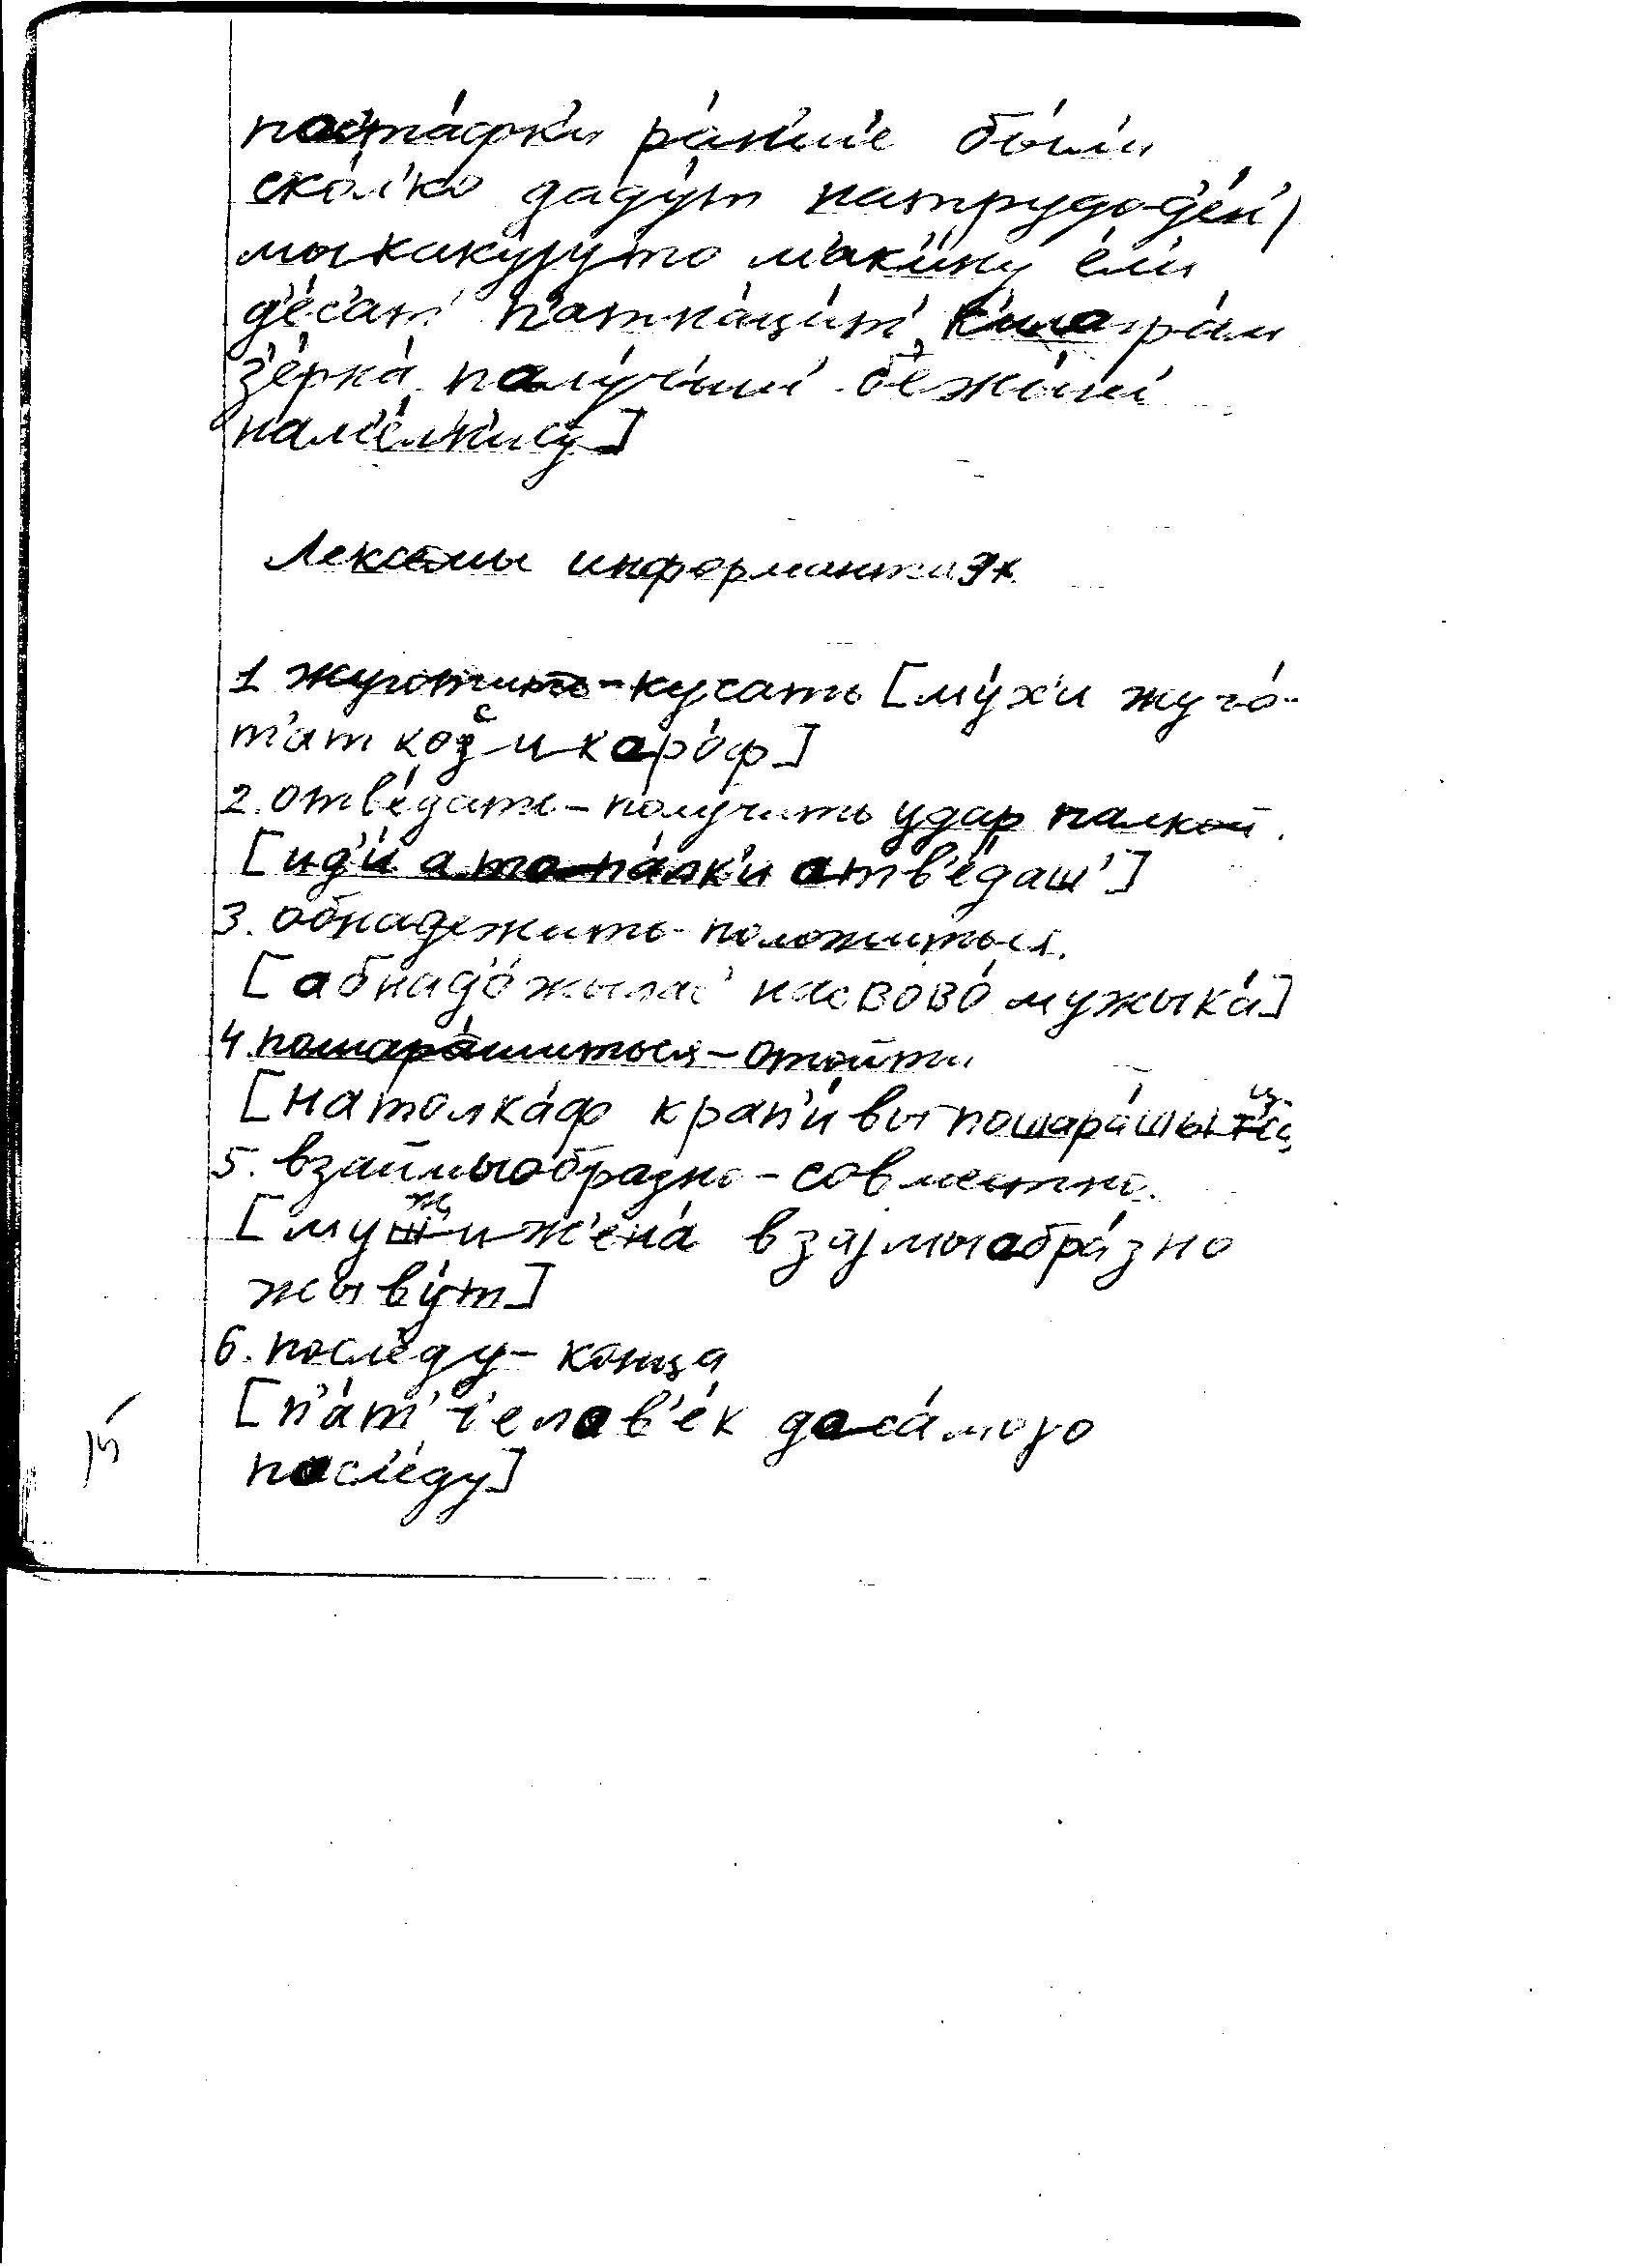 паста́фк'и ра́н'ше бы́л'и
ско́л'ко даду́т натрудод'е́н'/
мыкакуjуто м'ак'и́ну е́л'и
д'е́с'ат' п'атна́ц'ит' к'илагра́м
з'ерна́ палу́ч'ыл'и б'ежи́м
нам'е́л'н'ицу]
Лексемы информантки
1 жуготить-кусать [му́х'и жуго́-
т'ат коз и каро́ф]
2. отве́дать-получить удар палкой.
[ид'и́ ато па́лк'и атв'е́даш']
3. обнадежить-положиться.
[абнад'о́жылас' насвово́ мужыка́]
4. пошара́шиться-отойти
[натолка́ф крап'и́вы пошара́шыц
5. взаймыобразно-совместно.
[муж и ж'ена́ взаjмыабра́зно
жыву́т]
6. после́ду-конца
[п'а́т' ч'елав'е́к доса́мого
посл'е́ду]
15